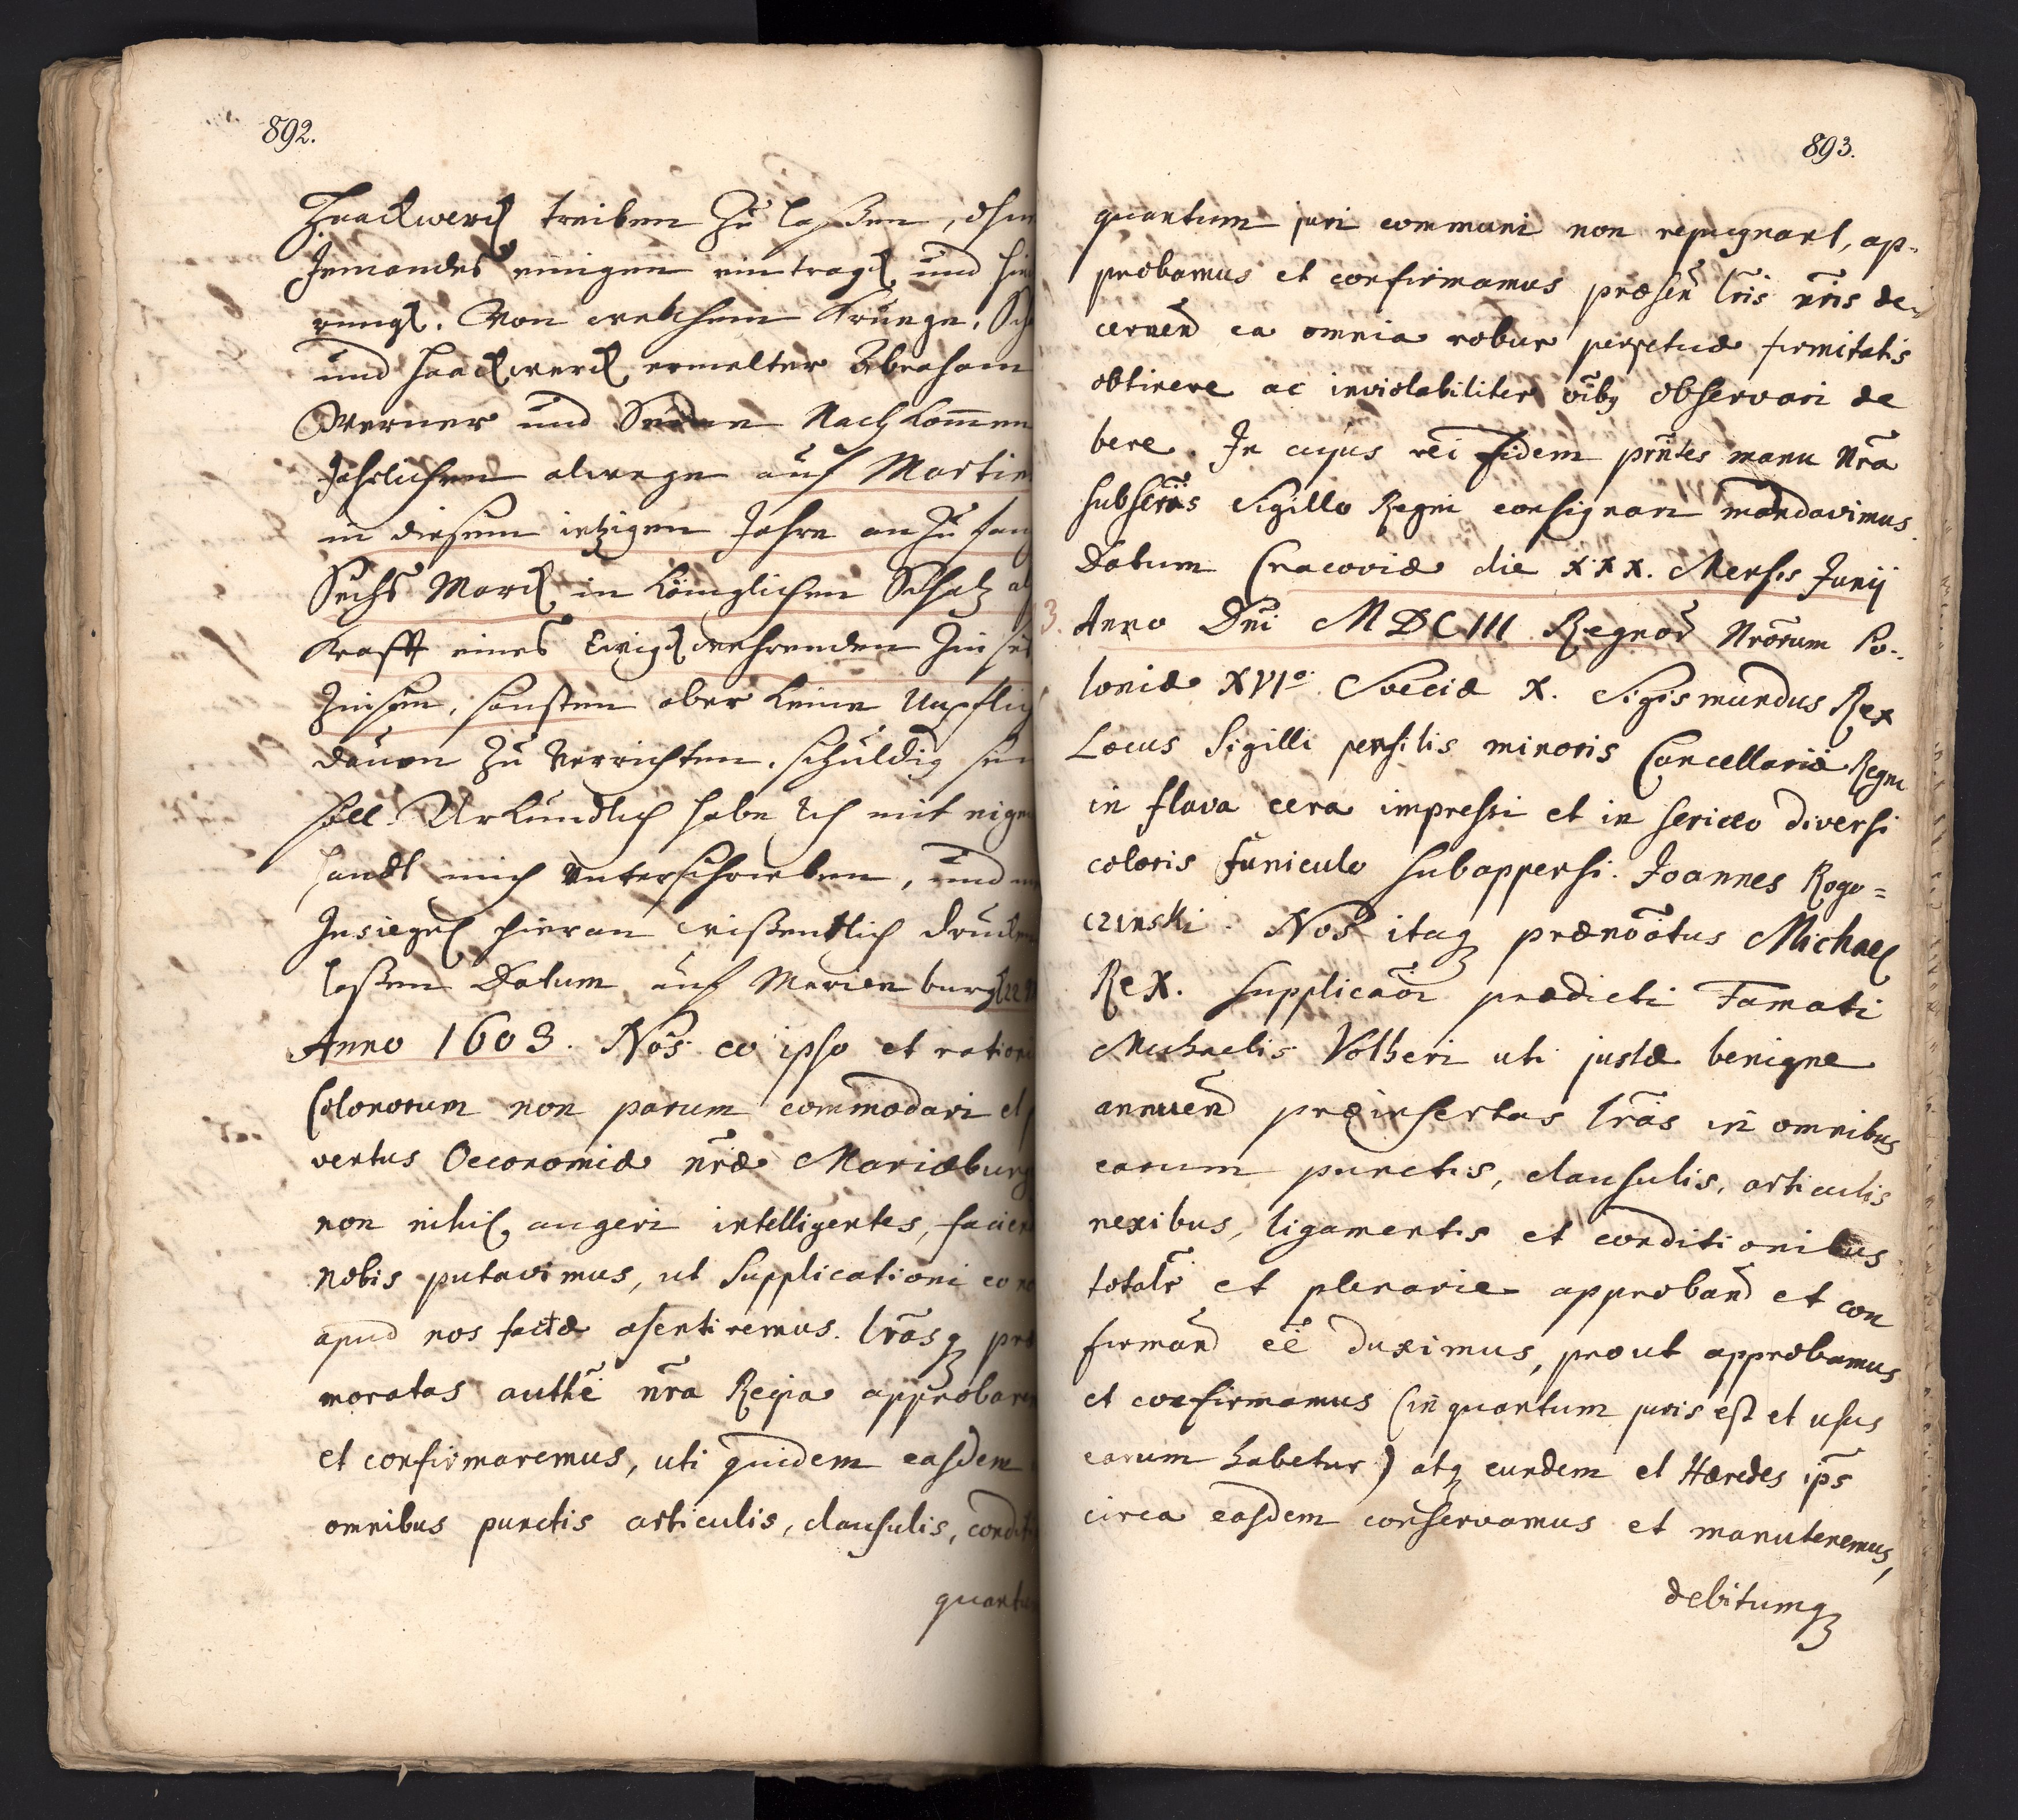 892.
Haackwerck treiben zu laßen, ohn
Jemandes einigen eintragk und hin
rungk. Von welchem Kruege, Sch
und Haackwerck ermelter Abraham
Werner und Seine Nachkom̄en
Jahrlichen alwege auf Martin
in diesem ietzigen Jahre an zu fang
Sechs Marck in königlichen Schatz al
Krafft eines Ewigkwehrenden Zinses
Zinsen, sonsten aber keine Unpflich
dauon zu verrichten, schuldig sein
soll. Urkundlich habe Ich mit eigen
Handt mich unterschrieben, und
Insiegel hieran wißentlich drucken
laßen Datum auf Marienburgk 22
Anno 1603. Nos eo ipso et ration
Colonorum non parum commodari et p
ventus Oeconomiæ nr̃æ Mariæburg
non nihil augeri intelligentes, facien
nobis putavimus, ut Supplicationi eo no
apud nos factæ asentiremus. Lr̃asq præ
moratas authẽ nr̃a Regia approbarem
et confirmaremus, uti quidem easdem
omnibus punctis articulis, clausulis, condit
quantu
893.
quantum juri communi non repugnant, ap-
probamus et confirmamus præsen̄ lr̃is nr̃is de-
cernen̄d ea omnia robur perpetuæ firmitatis
obtinere ac inviolabiliter oĩbq observari de
bere. In cujus rei fidem prñtes manu Nr̃a
subscr̃as Sigillo Regni consignari mandavimus.
Datum Cracoviæ die XXX. Mensis Junij
3. Anno Dñi MDCIII Regnor̃ Nr̃orum Po-
loniæ XVIo. Sueciæ X. Sigismundus Rex
Locus Sigilli pensilis minoris Cancellariæ Regni
in flava cera impressi et in sericeo diversi
coloris funiculo subappensi. Joannes Rogo=
czinski. Nos itaq prænõatus Michael
Rex. Supplicaõi prædicti Famati
Michaelis Volberi uti justæ benigne
annuen̄d præinsertas lr̃as in omnibus
earum punctis, clausulis, articulis
nexibus, ligamentis et conditionibus
totalr̃ et plenarie approban̄d et con
firman̄d eẽ duximus, prout approbamus
et confirmamus (in quantum juris est et usus
earum habetur) atq eundem et Hæredes ip̃s
circa easdem conservamus et manutenemus,
debitumq